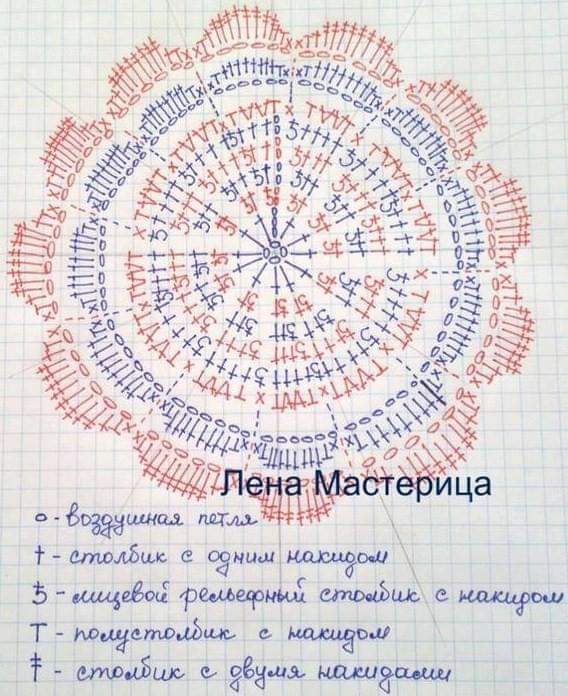 Лена Мастерица
о - воздушная петля
† - столбик с одним накидом
5 - лицевой рельефный столбик с накидом
Т - полустолбик с накидом
‡ - столбик с двумя накидами